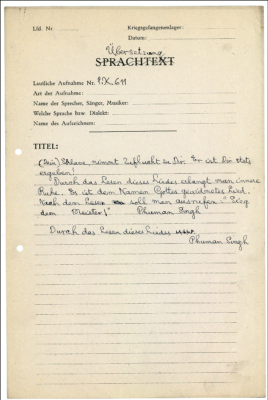 Lfd. Nr.
Kriegsgefangenenlager:
Datum:
Übersetzung
SPRACHTEXT
Lautliche Aufnahme Nr. P.K. 611
Art der Aufnahme:
Name des Sprecher, Sänger, Musiker:
Welche Sprache bzw. Dialekt:
Name des Aufzeichners:
TITEL:
(Dein) Sklave nimmt Zuflucht zu Dir. Er ist Dir stets
ergeben!
Durch das Lesen dieses Liedes erlangt man innere
Ruhe. Es ist dem Namen Gottes gewidmetes Lied.
Nach dem Lesen soll man ausrufen "Sieg
dem Meister!" Phuman Singh
Durch das Lesen dieses Liedes
Phuman Singh